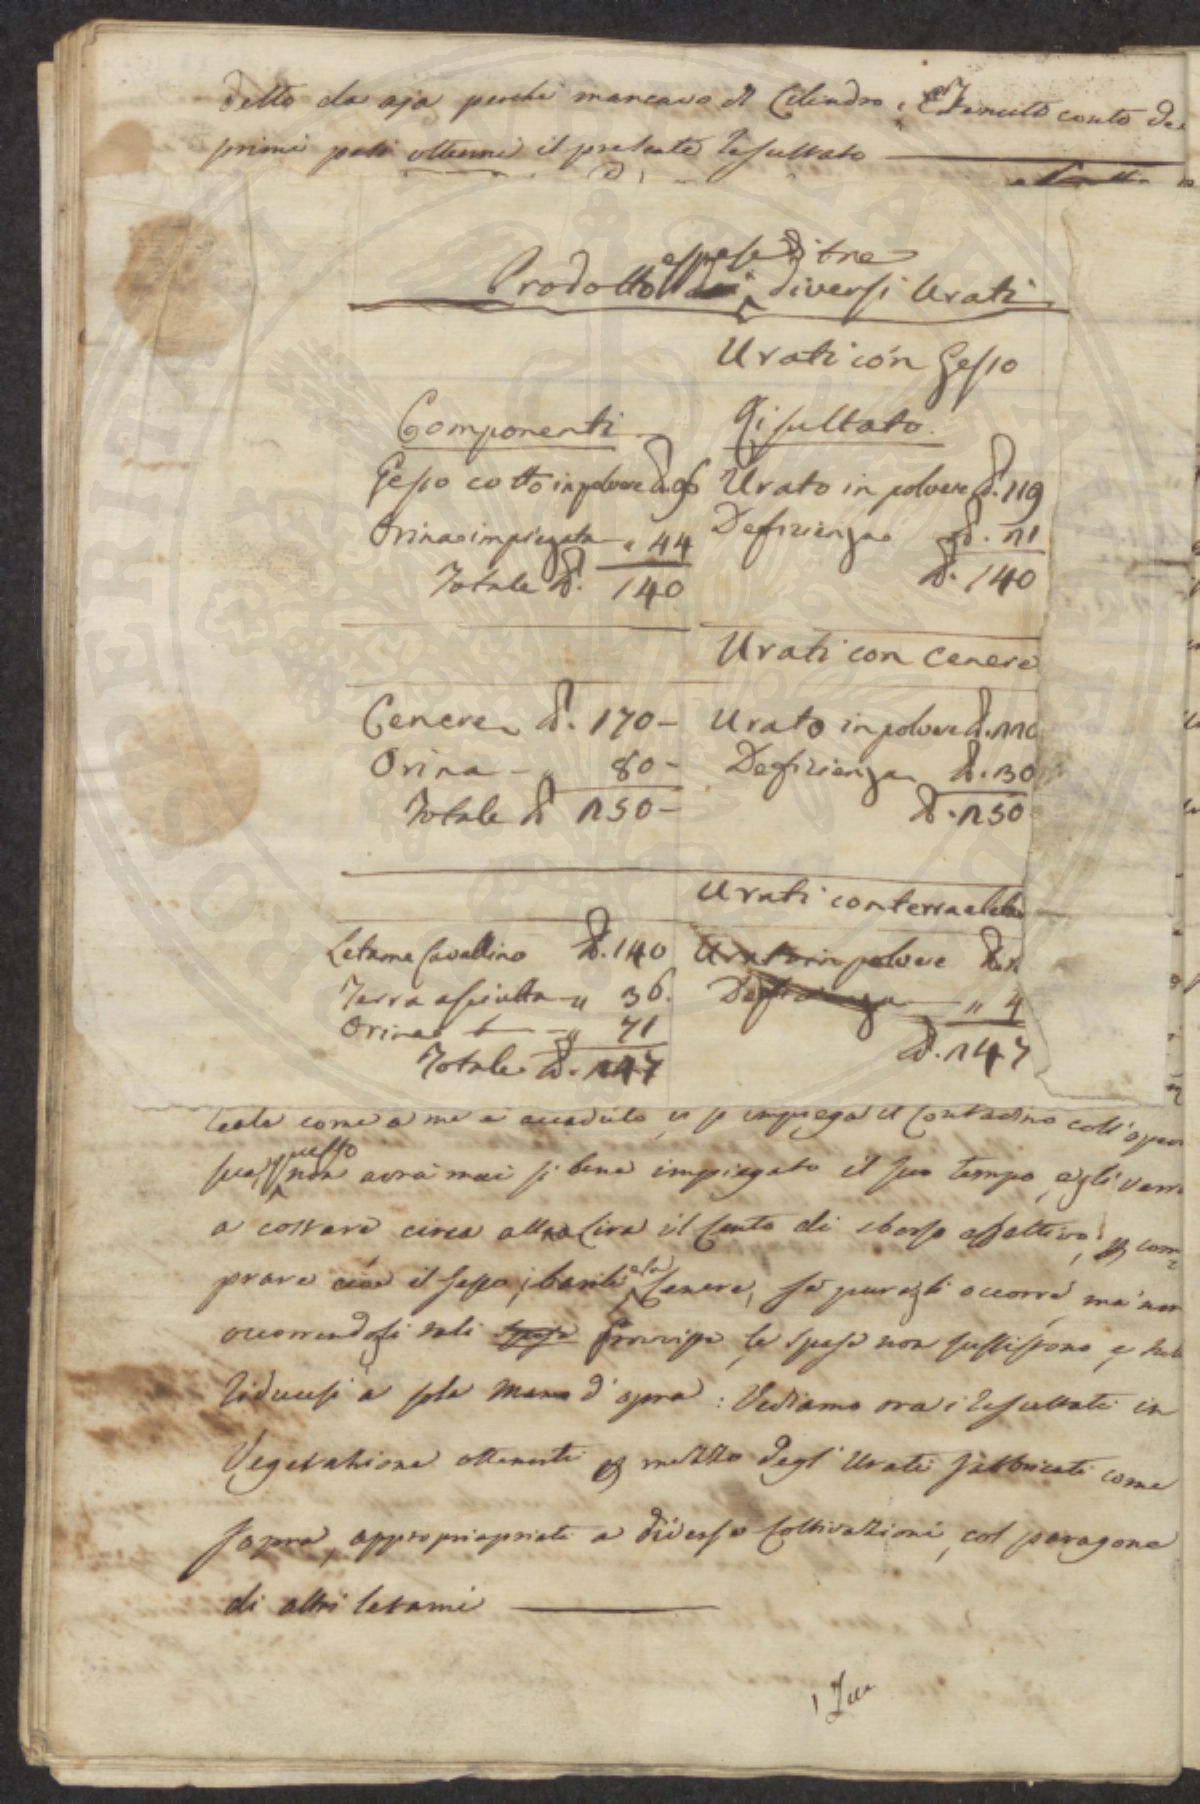 detto da aja perchè mancavo di Cilindro, e tenuto conto de
primi pesi ottenni il presente resultato
Prodotto e spese di tre diversi Urati
Urati con Gesso
Componenti Risultato.
Gesso cotto in polvere d. 96 Urato in polvere d. 119
Orina impiegata " 44 Deficienza d. 21
Totale d. 140 d. 140
Urati con Cenere
Cenere d. 170 - Urato in polvere d. 220
Orina - " 80 - Deficienza d. 30
Totale d 250 - d. 250
Urati con terra e leta
Letame Cavallino d. 140 Urato in polvere d. 2
Terra asciutta - " 36. Deficienza - " 4
Orina - " 71
Totale d. 247 d. 247
come a me è accaduto, vi si impiega il Contadino coll'opera
sua, questo non avrà mai sì bene impiegato il suo tempo, egli verrà
a costare circa alla Lira il Cento di sborso effettivo, per com
prare cioè il Gesso, i barili e la Cenere, se pure gli occorre, ma non
occorrendogli tali spese provviste, le spese non sussistono, e
riducesi a sola mano d'opra: Vediamo ora i resultati in
Vegetazione ottenuti per mezzo degl'Urati fabbricati come
sopra, appropriati a diverse Coltivazioni, col paragone
di altri letami